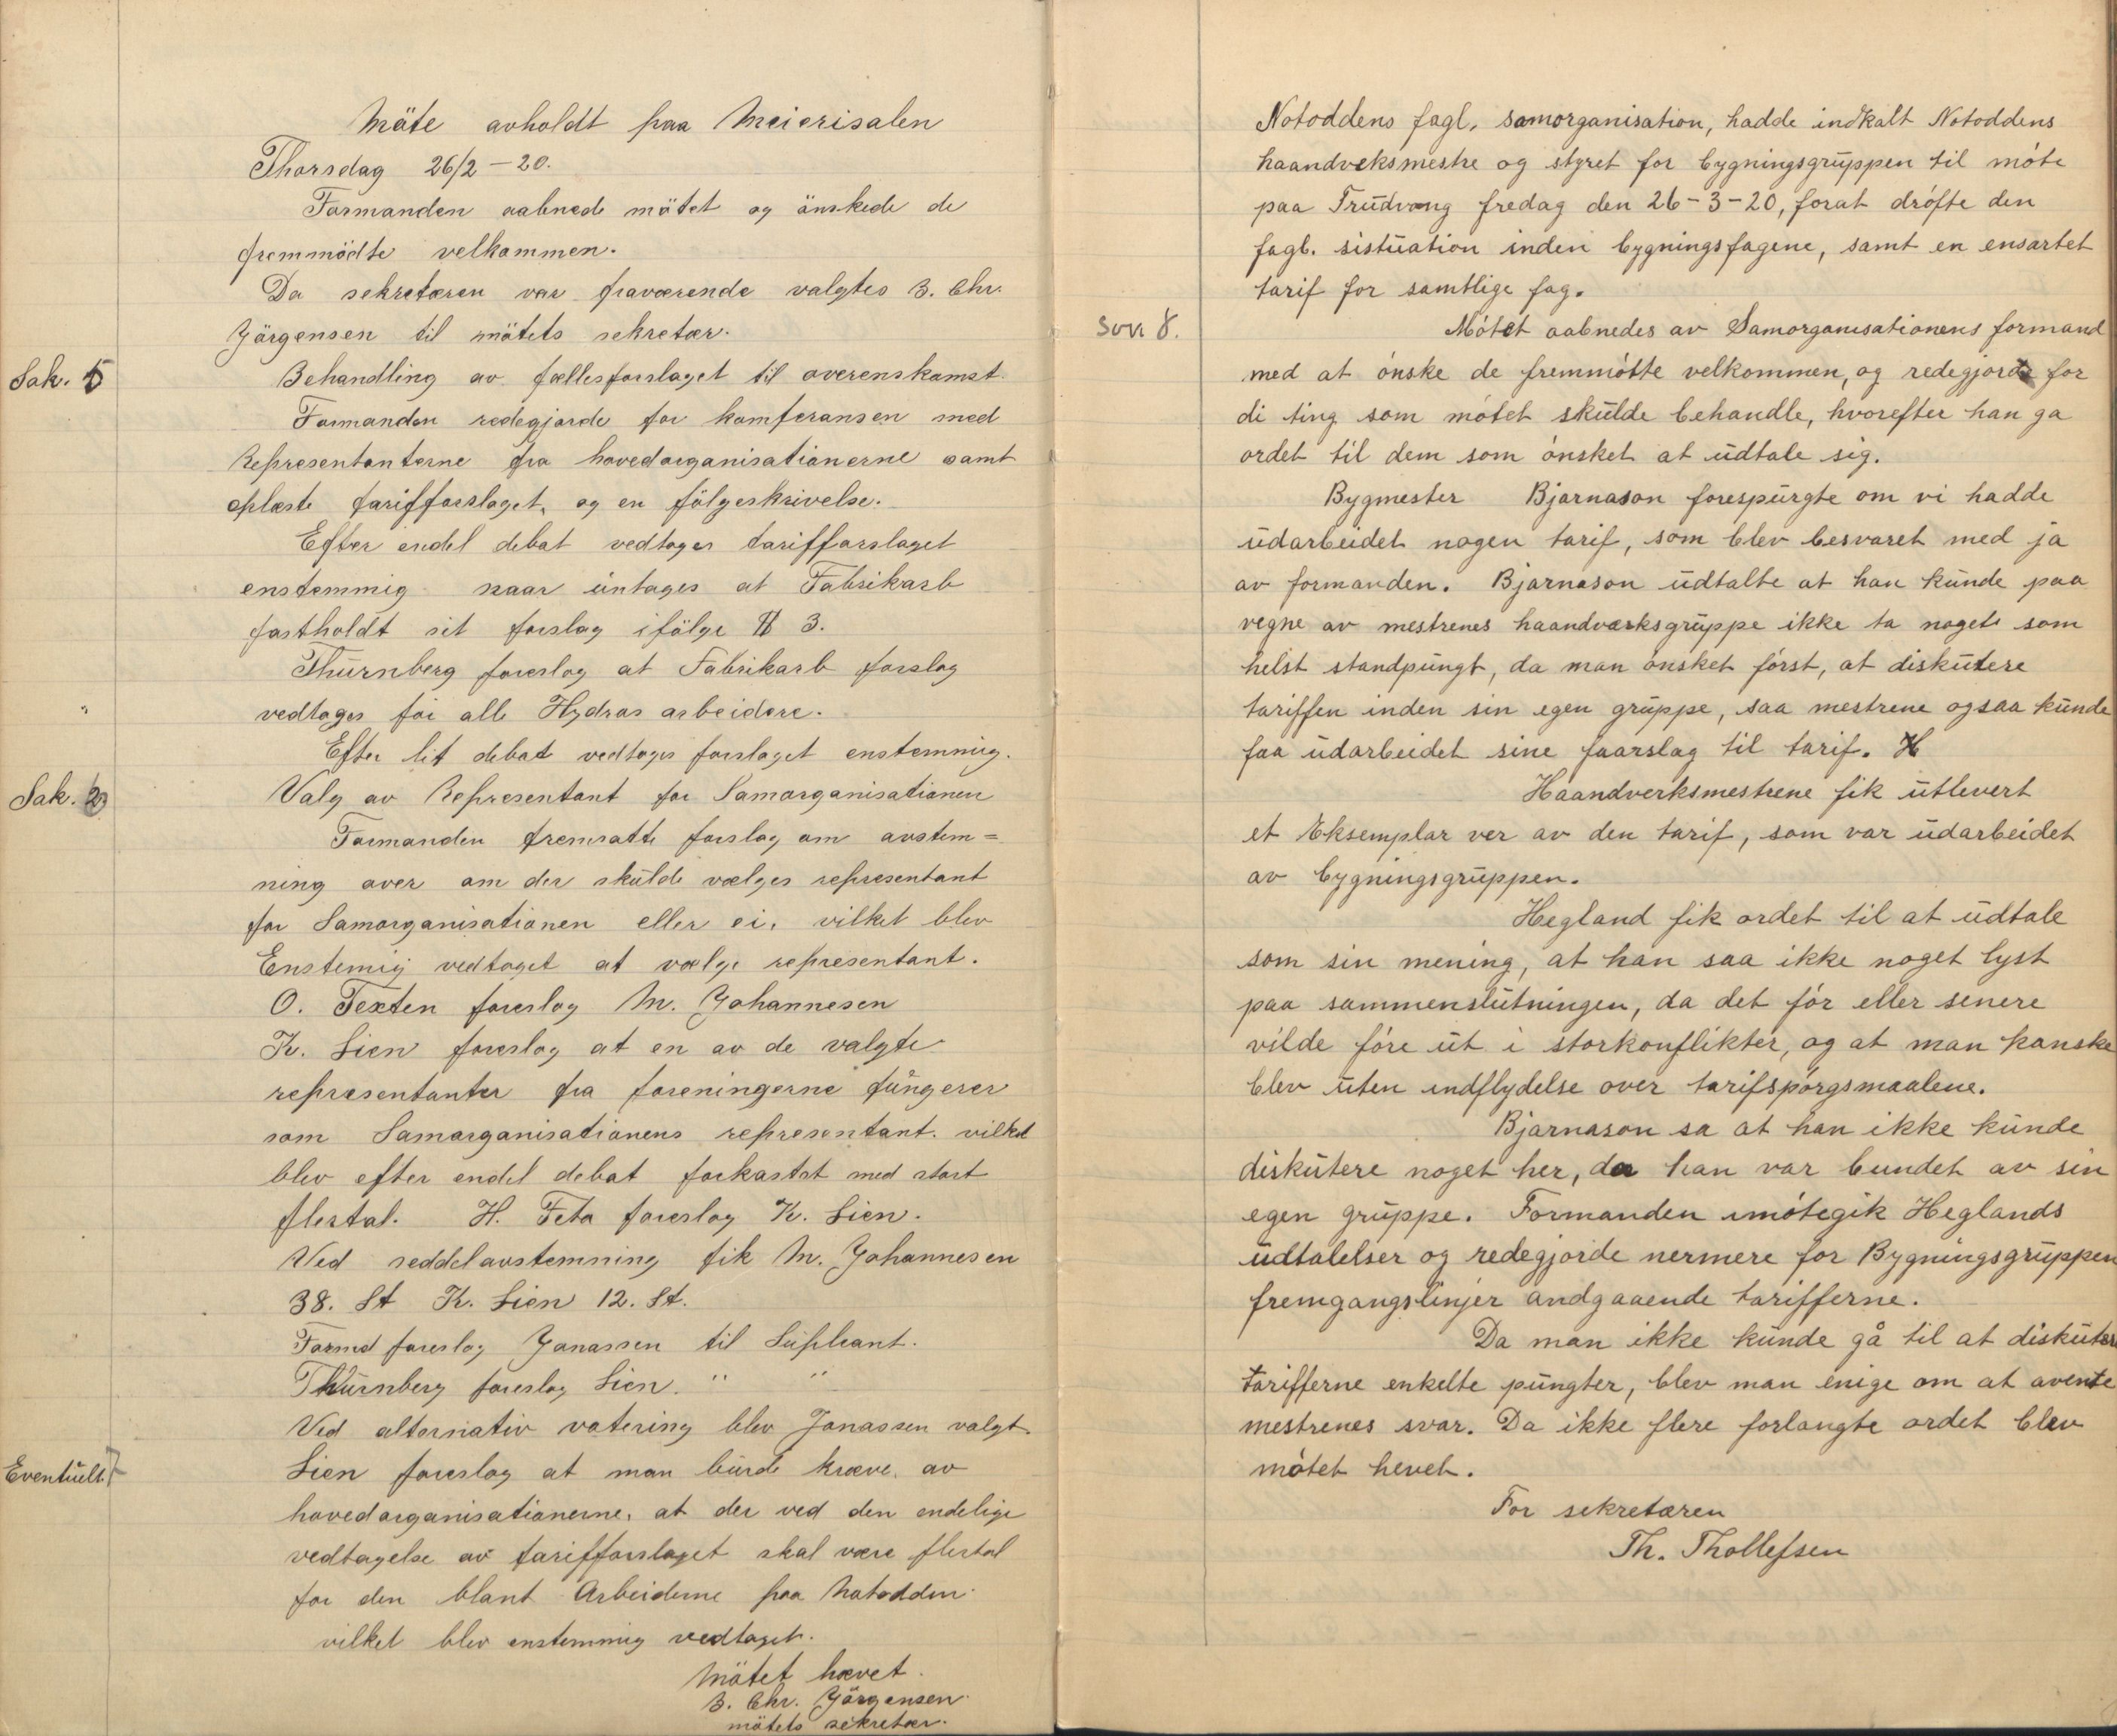 Möte avholdt paa Meierisalen
Thorsdag 26/2 – 20.
Formanden aabnede mötet og önskede de
fremmödte velkommen.
Da sekretæren var fraværende valgtes B. Chr.
Jörgensen til mötets sekretær.
Sak. 5 Behandling av fællesforslaget til overenskomst.
Formanden redegjorde for konferansen med
Representanterne fra hovedorganisationerne samt
oplæste tarifforslaget, og en fölgeskrivelse.
Efter endel debat vedtoges tarifforslaget
enstemmig naar untages at Fabrikarb
fastholdt sit forslag ifölge § 3.
Thurnberg foreslog at Fabrikarb forslag
" vedtages for alle Hydros arbeidere.
Efter lit debat vedtoges forslaget enstemmig.
Sak. Valg av Representant for Samorganisationen
Formanden fremsatte forslag om avstem=
ning over om der skulde vælges representant
for Samorganisationen eller ei, vilket blev
Enstemig vedtaget at vælge representant.
O. Texten foreslog M. Johannesen
K. Lien foreslog at en av de valgte
representanter fra foreningerne fungerer
som Samorganisationens representant. vilket
blev efter endel debat forkastet med stort
flertal. H. Feta foreslog K. Lien.
Ved seddelavstemning fik M. Johannesen
38. St K. Lien 12. St.
Formd foreslog Jonassen til Supleant.
Thurnberg foreslog Lien. " "
Ved alternativ votering blev Jonassen valgt.
Eventuelt. Lien foreslog at man burde kræve, av
hovedorganisationerne, at der ved den endelige
vedtagelse av tarifforslaget skal være flertal
for den blant Arbeiderne paa Notodden
vilket blev enstemmig vedtaget.
Mötet hævet.
B. Chr. Jörgensen
mötets sekretær.
Notoddens fagl. samorganisation, hadde indkalt Notoddens
haandveksmestre og styret for bygningsgruppen til móte
paa Trudvang fredag den 26-3-20, forat drófte den
fagl. sistuation inden bygningsfagene, samt en ensartet
tarif for samtlige fag.
8. Mótet aabnedes av Samorganisationens formand
med at ónske de fremmótte velkommen, og redegjorde for
di ting som mótet skulde behandle, hvorefter han ga
ordet til dem som ónsket at udtale sig.
Bygmester Bjarnason forespurgte om vi hadde
udarbeidet nogen tarif, som blev besvaret med ja
av formanden. Bjarnason udtalte at han kunde paa
vegne av mestrenes haandværksgruppe ikke ta nogets som
helst standpungt, da man ónsket fórst, at diskutere
tariffen inden sin egen gruppe, saa mestrene ogsaa kunde
faa udarbeidet sine faarslag til tarif.
Haandverksmestrene fik utlevert
et Eksemplar ver av den tarif, som var udarbeidet
av bygningsgruppen.
Hegland fik ordet til at udtale
som sin mening, at han saa ikke noget lyst
paa sammenslutningen, da det fór eller senere
vilde fóre ut i storkonflikter, og at man kanske
blev uten indflydelse over tarifspórgsmaalene.
Bjarnason sa at han ikke kunde
diskutere noget her, da han var bundet av sin
egen gruppe. Formanden imótegik Heglands
udtalelser og redegjorde nermere for Bygningsgruppen
fremgangslinjer andgaaende tarifferne.
Da man ikke kunde gå til at diskutere
tarifferne enkelte pungter, blev man enige om at avente
mestrenes svar. Da ikke flere forlangte ordet blev
mótet hevet.
For sekretæren
Th. Thollefsen